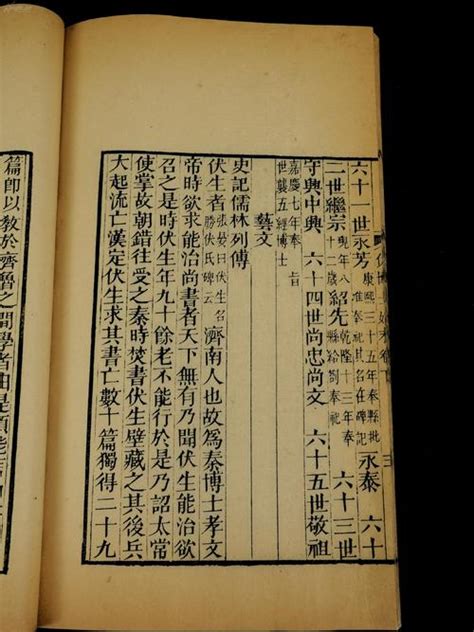 六十一世永芳康熙三十五年奉縣批准奉祀其名在碑記永泰 六十
二世繼宗現年八十二歲紹先乾隆十三年奉縣給劄奉祀 六十三世
守興中興 六十四世尚忠尚文 六十五世敬祖
嘉慶七年奉
世襲五經博士
藝文
史記儒林列傳
伏生者張晏曰伏生名勝伏氏碑云濟南人也故為秦博士孝文
帝時欲求能治尚書者天下無有乃聞伏生能治欲
召之是時伏生年九十餘老不能行於是乃詔太常
使掌故朝錯往受之秦時焚書伏生壁藏之其後兵
大起流亡漢定伏生求其書亡數十篇獨得二十九
篇即以教於齊魯之間學者由是頗能